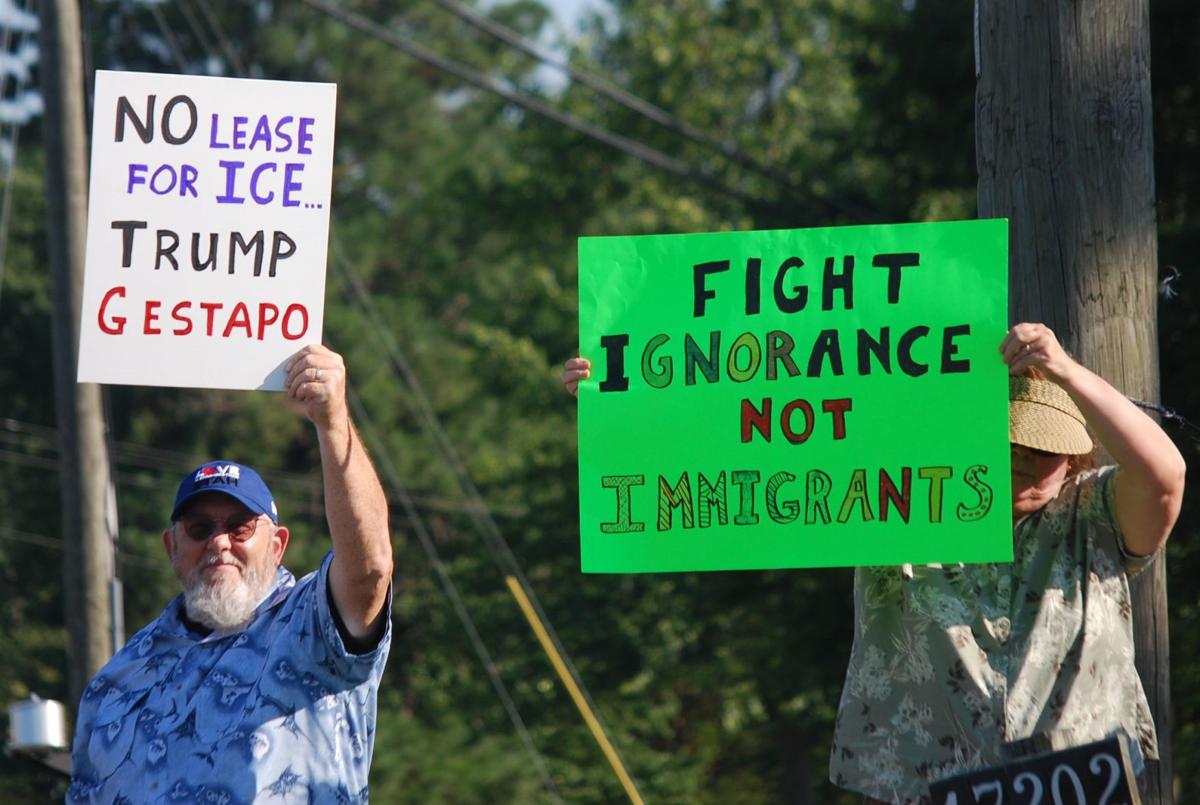 NO LEASE
FOR ICE...
TRUMP
GESTAPO
FIGHT
IGNORANCE
NOT
IMMIGRANTS
LOVE
UTAH
47202